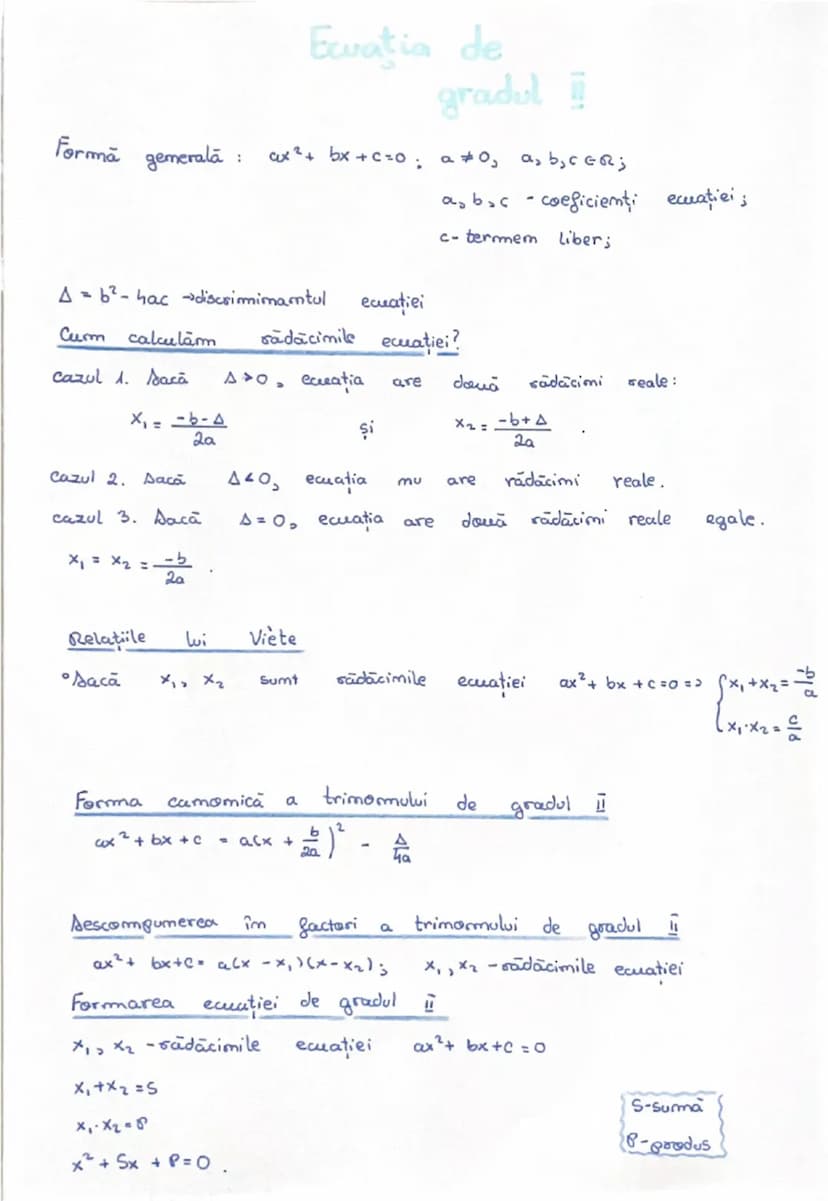 Ecuația de
gradul II
Formă generală : ax² + bx + c = 0 ; a ≠ 0, a, b, c ∈ R;
a, b, c - coeficienți ecuației;
c - termen liber;
Δ = b² - 4ac → discriminantul ecuației
Cum calculăm rădăcinile ecuației?
Cazul 1. Dacă Δ > 0, ecuația are două rădăcini reale:
x₁ = (-b - Δ)/2a și x₂ = (-b + Δ)/2a .
Cazul 2. Dacă Δ < 0, ecuația nu are rădăcini reale.
Cazul 3. Dacă Δ = 0, ecuația are două rădăcini reale egale.
x₁ = x₂ = -b/2a .
Relațiile lui Viète
• Dacă x₁, x₂ sunt rădăcinile ecuației ax² + bx + c = 0 => { x₁ + x₂ = -b/a
x₁ · x₂ = c/a
Forma canonică a trinomului de gradul II
ax² + bx + c = a(x + b/2a)² - Δ/4a
Descompunerea în factori a trinomului de gradul II
ax² + bx + c = a(x - x₁)(x - x₂); x₁, x₂ - rădăcinile ecuației
Formarea ecuației de gradul II
x₁, x₂ - rădăcinile ecuației ax² + bx + c = 0
x₁ + x₂ = S
x₁ · x₂ = P
x² + Sx + P = 0 .
S - sumă
P - produs